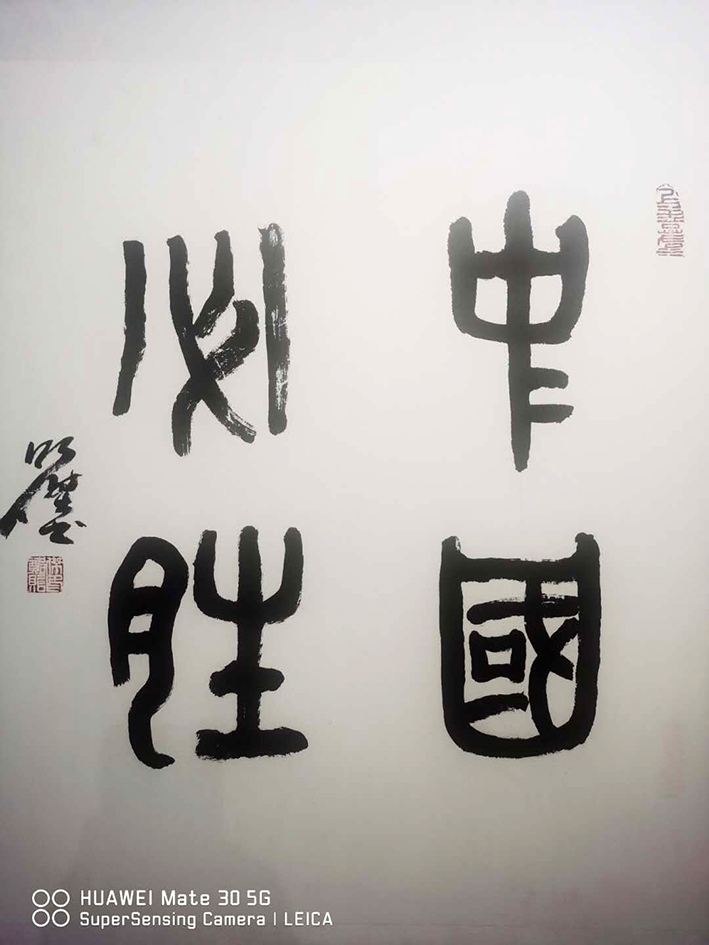 中國
必胜
HUAWEI Mate 30 5G
SuperSensing Camera | LEICA